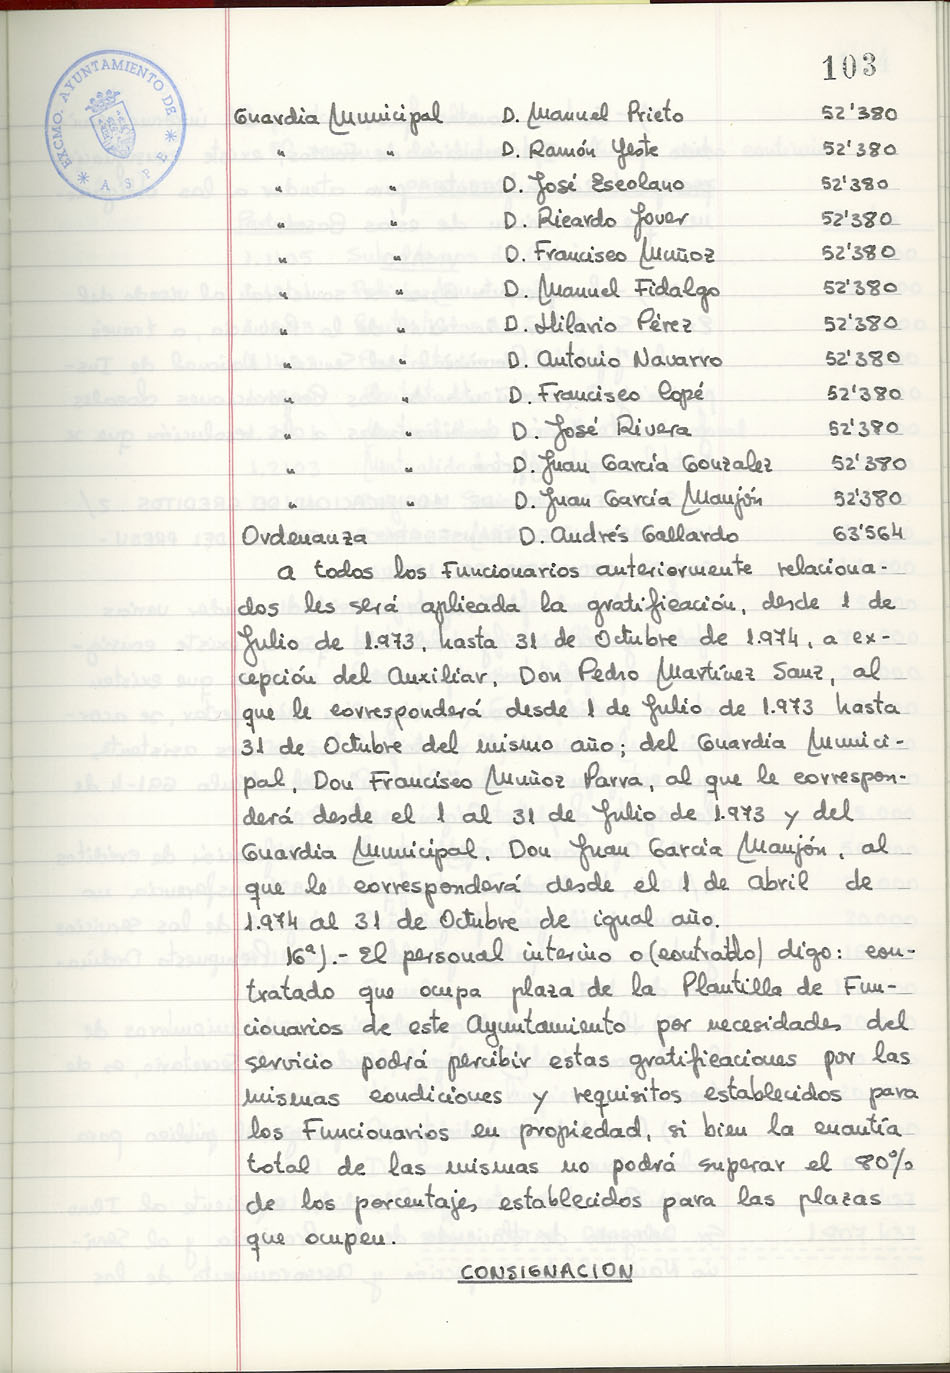 103
EXCMO. AYUNTAMIENTO DE
* ASPE *
Guardia Municipal D. Manuel Prieto 52'380
" " D. Ramón Yeste 52'380
" " D. José Escolano 52'380
" " D. Ricardo Jover 52'380
" " D. Francisco Muñoz 52'380
" " D. Manuel Fidalgo 52'380
" " D. Hilario Pérez 52'380
" " D. Antonio Navarro 52'380
" " D. Francisco Copé 52'380
" " D. José Rivera 52'380
" " D. Juan García Gonzalez 52'380
" " D. Juan García Manjón 52'380
Ordenanza D. Andrés Gallardo 63'564
A todos los Funcionarios anteriormente relaciona-
dos les será aplicada la gratificación, desde 1 de
Julio de 1.973, hasta 31 de Octubre de 1.974, a ex-
cepción del Auxiliar, Don Pedro Martínez Sanz, al
que le corresponderá desde 1 de Julio de 1.973 hasta
31 de Octubre del mismo año; del Guardia Munici-
pal, Don Francisco Muñoz Parra, al que le correspon-
derá desde el 1 al 31 de Julio de 1.973 y del
Guardia Municipal, Don Juan García Manjón, al
que le corresponderá desde el 1 de Abril de
1.974 al 31 de Octubre de igual año.
16ª).- El personal interino o (contratdo) digo: con-
tratado que ocupa plaza de la Plantilla de Fun-
cionarios de este Ayuntamiento por necesidades del
servicio podrá percibir estas gratificaciones por las
mismas condiciones y requisitos establecidos para
los Funcionarios en propiedad, si bien la cuantía
total de las mismas no podrá superar el 80%
de los porcentajes establecidos para las plazas
que ocupen.
CONSIGNACION